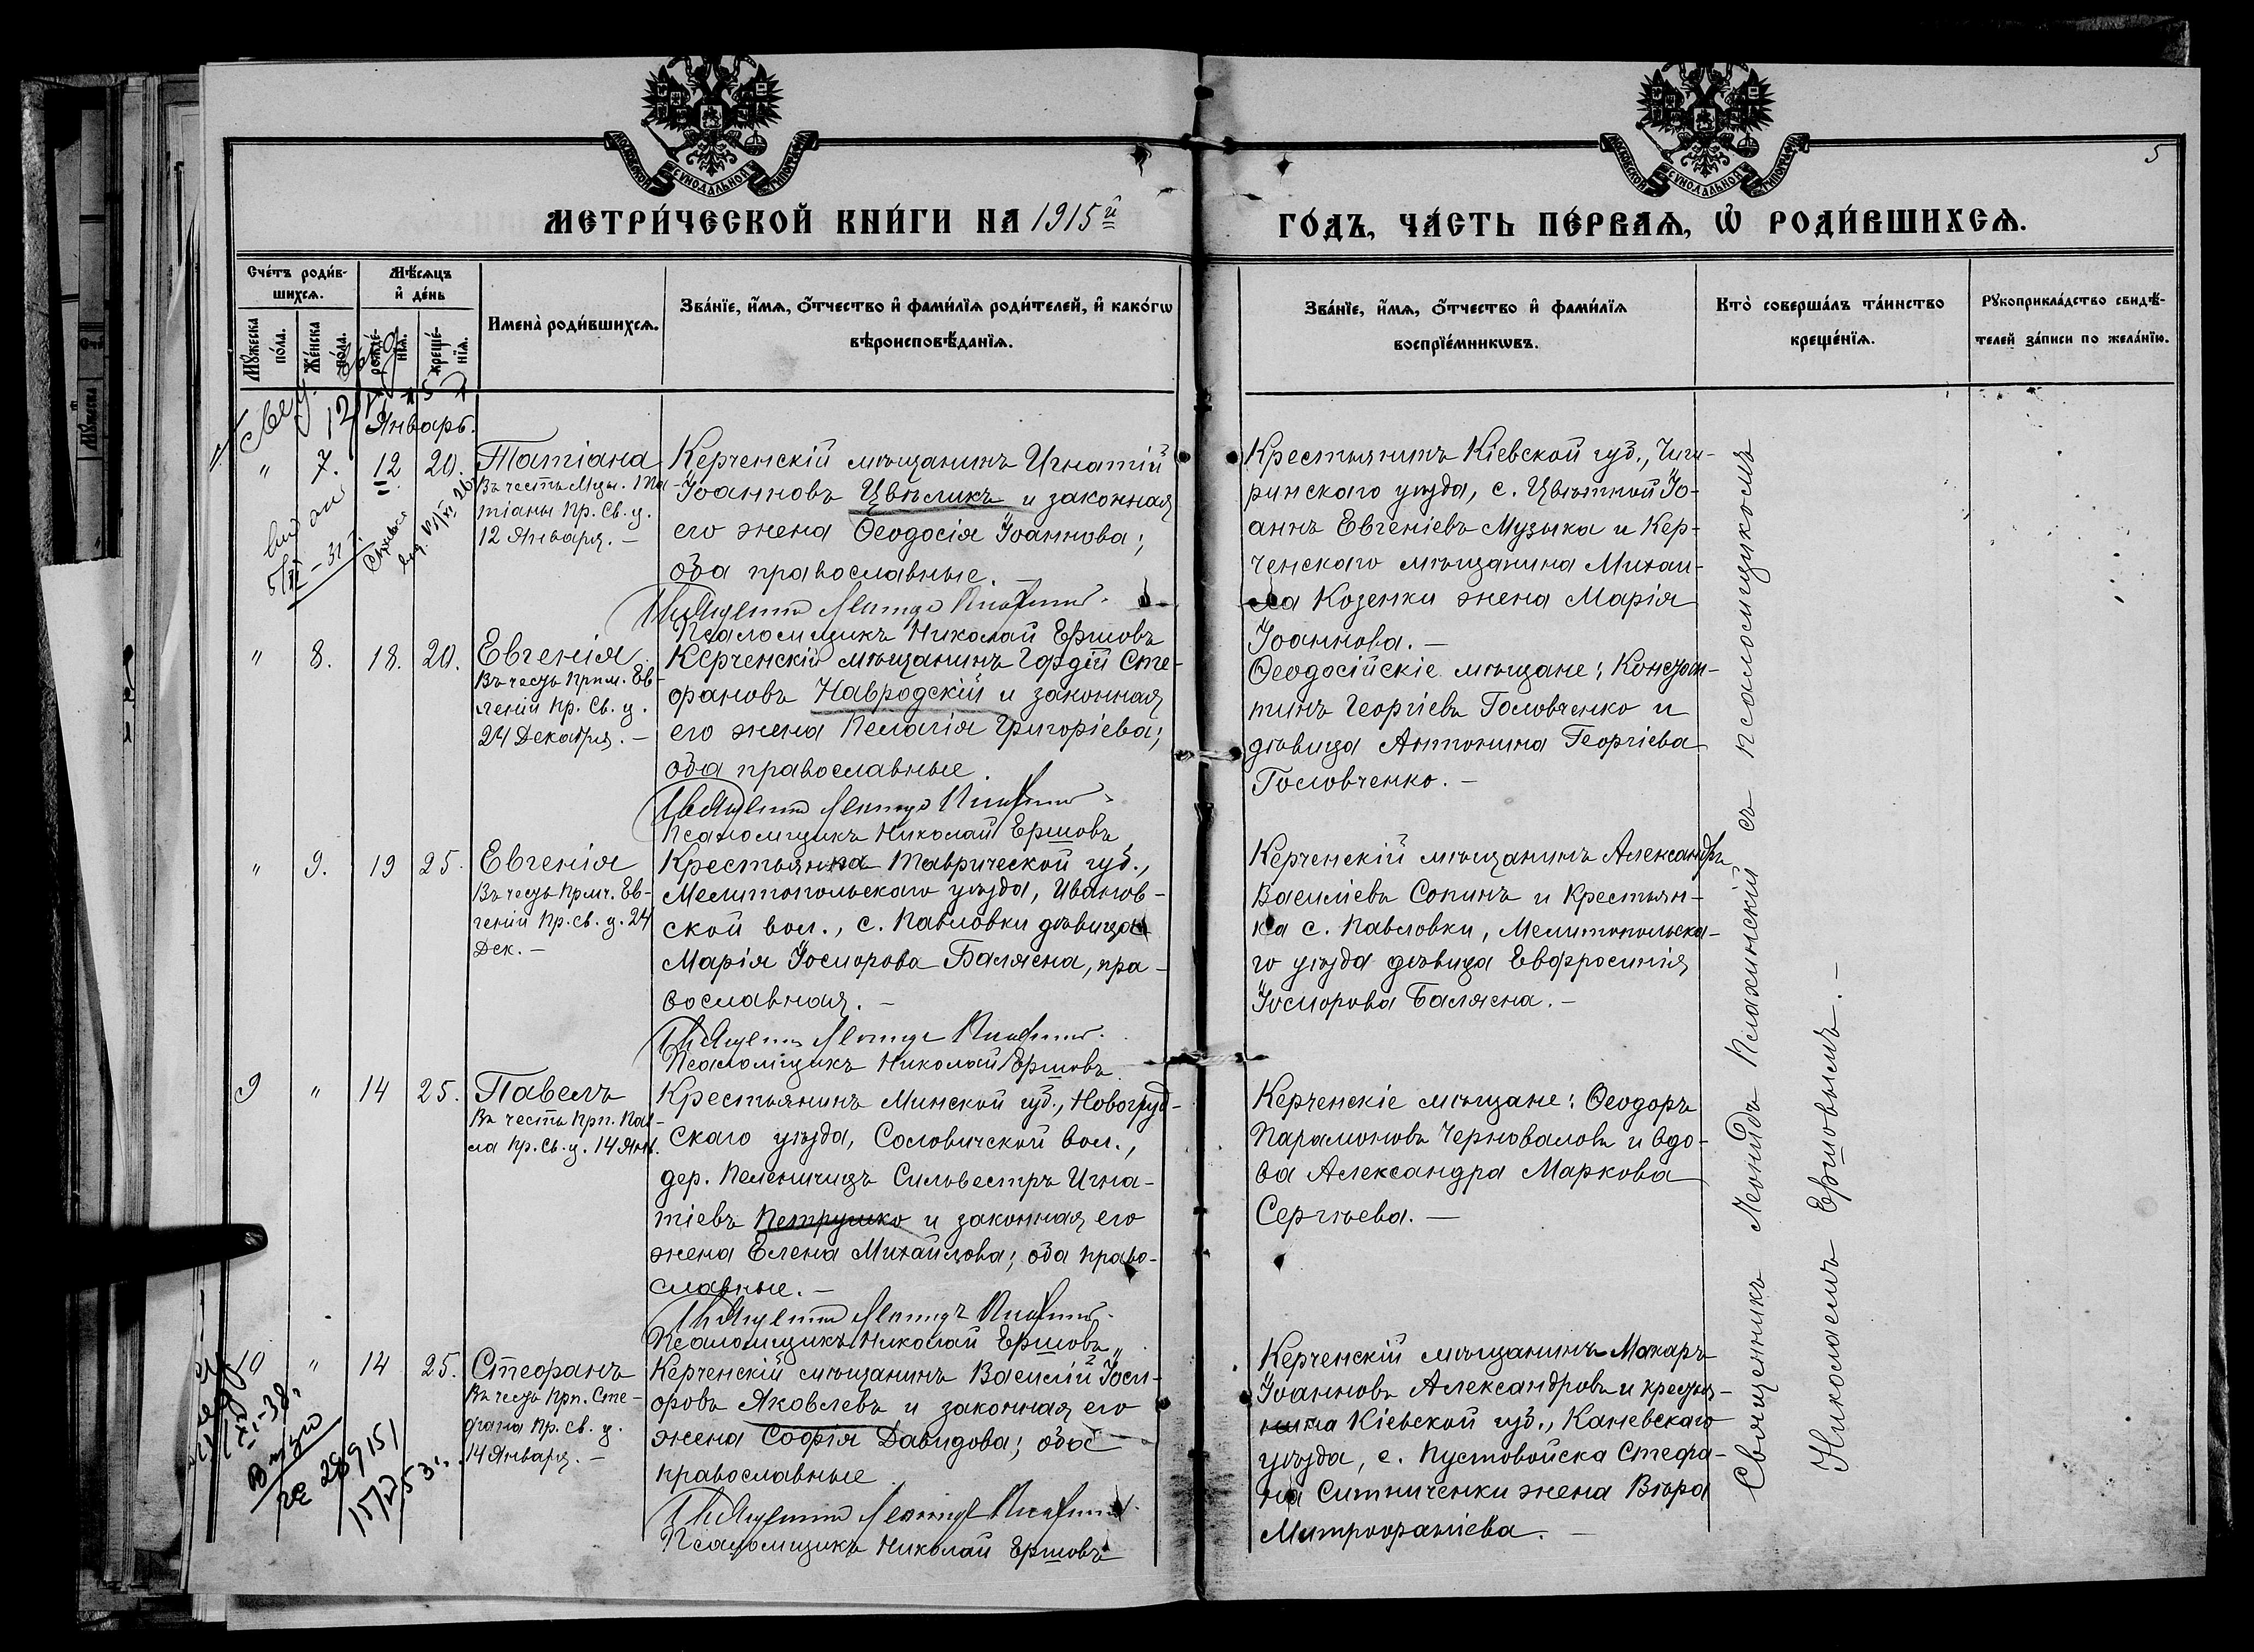 МЕТРИ́ЧЕСКОЙ КНИ́ГИ НА 1915й
ГО́ДЪ, ЧА́СТЬ ПЕ́РВАѦ, Ѡ҆ РОДИ́ВШИХСѦ.
5
Сче́тъ роди́в-
шихсѧ.
Мѣ́сѧцъ
и҆ де́нь
Мꙋ́жеска
по́ла.
Же́нска
по́ла.
рожде́-
нїѧ.
креще́-
нїѧ.
Имена̀ роди́вшихсѧ.
Зва́нїе, и҆́мѧ, ѻ҆́тчество и҆ фами́лїѧ роди́телей, и҆ како́гѡ
вѣроисповѣ́данїѧ.
Зва́нїе, и҆́мѧ, ѻ҆́тчество и҆ фами́лїѧ
воспрїе́мникѡвъ.
Кто̀ соверша́лъ та́инство
креще́нїѧ.
Рꙋкоприкла́дство свидѣ́-
телей за́писи по жела́нїю.
Январь.
" 7. 12 20. Татіана
Въ честь Мцы. Та-
тіаны пр. св. ц.
12 Января. —
Керченскій мѣщанинъ Игнатій
Іоанновъ Цвѣликъ и законная
его жена Ѳеодосія Іоаннова;
оба православные. —
Псаломщикъ Николай Ершовъ
Крестьянинъ Кіевской губ., Чиги-
ринскаго уѣзда, с. Цвѣтной Іо-
аннъ Евгеніевъ Музыка и Кер-
ченскаго мѣщанина Михаи-
ла Козенки жена Марія
Іоаннова. —
" 8. 18. 20. Евгенія
Въ честь Прпм. Ев-
геніи пр. св. ц.
24 Декабря. —
Керченскій мѣщанинъ Гордій Сте-
фановъ Навродскій и законная
его жена Пелагія Григоріева;
оба православные.
Псаломщикъ Николай Ершовъ
Ѳеодосійскіе мѣщане: Констан-
тинъ Георгіевъ Головченко и
дѣвица Антонина Георгіева
Головченко. —
" 9. 19 25. Евгенія
Въ честь Прмч. Ев-
геніи пр. св. ц. 24
Дек. —
Крестьянка Таврической губ.,
Мелитопольскаго уѣзда, Иванов-
ской вол., с. Павловки дѣвица
Марія Іосифова Балясна, пра-
вославная. —
Псаломщикъ Николай Ершовъ
Керченскій мѣщанинъ Александръ
Василіевъ Сопинъ и крестьян-
ка с. Павловки, Мелитопольска-
го уѣзда дѣвица Евфросинія
Іосифова Балясна. —
9 " 14 25. Павелъ
Въ честь Прп. Пав-
ла пр. св. ц. 14 Янв.
Крестьянинъ Минской губ., Новогруд-
скаго уѣзда, Сословичской вол.,
дер. Пеленичицъ Сильвестръ Игна-
тіевъ Петрушко и законная его
жена Елена Михайлова; оба право-
славные. —
Псаломщикъ Николай Ершовъ
Керченскіе мѣщане: Ѳеодоръ
Парамоновъ Черноваловъ и вдо-
ва Александра Маркова
Сергѣева. —
10 " 14 25. Стефанъ
Въ честь Прп. Сте-
фана пр. св. ц.
14 Января. —
Керченскій мѣщанинъ Василій Іоси-
фовъ Яковлевъ и законная его
жена Софія Давидова; оба
православные
Псаломщикъ Николай Ершовъ
Керченскій мѣщанинъ Макаръ
Іоанновъ Александровъ и крестья-
нина Кіевской губ., Каневскаго
уѣзда, с. Пустовойска Стефа-
на Ситниченки жена Вѣра
Митрофаніева. —
Священникъ Леонидъ Плахинскій съ псаломщикомъ
Николаемъ Ершовымъ. —